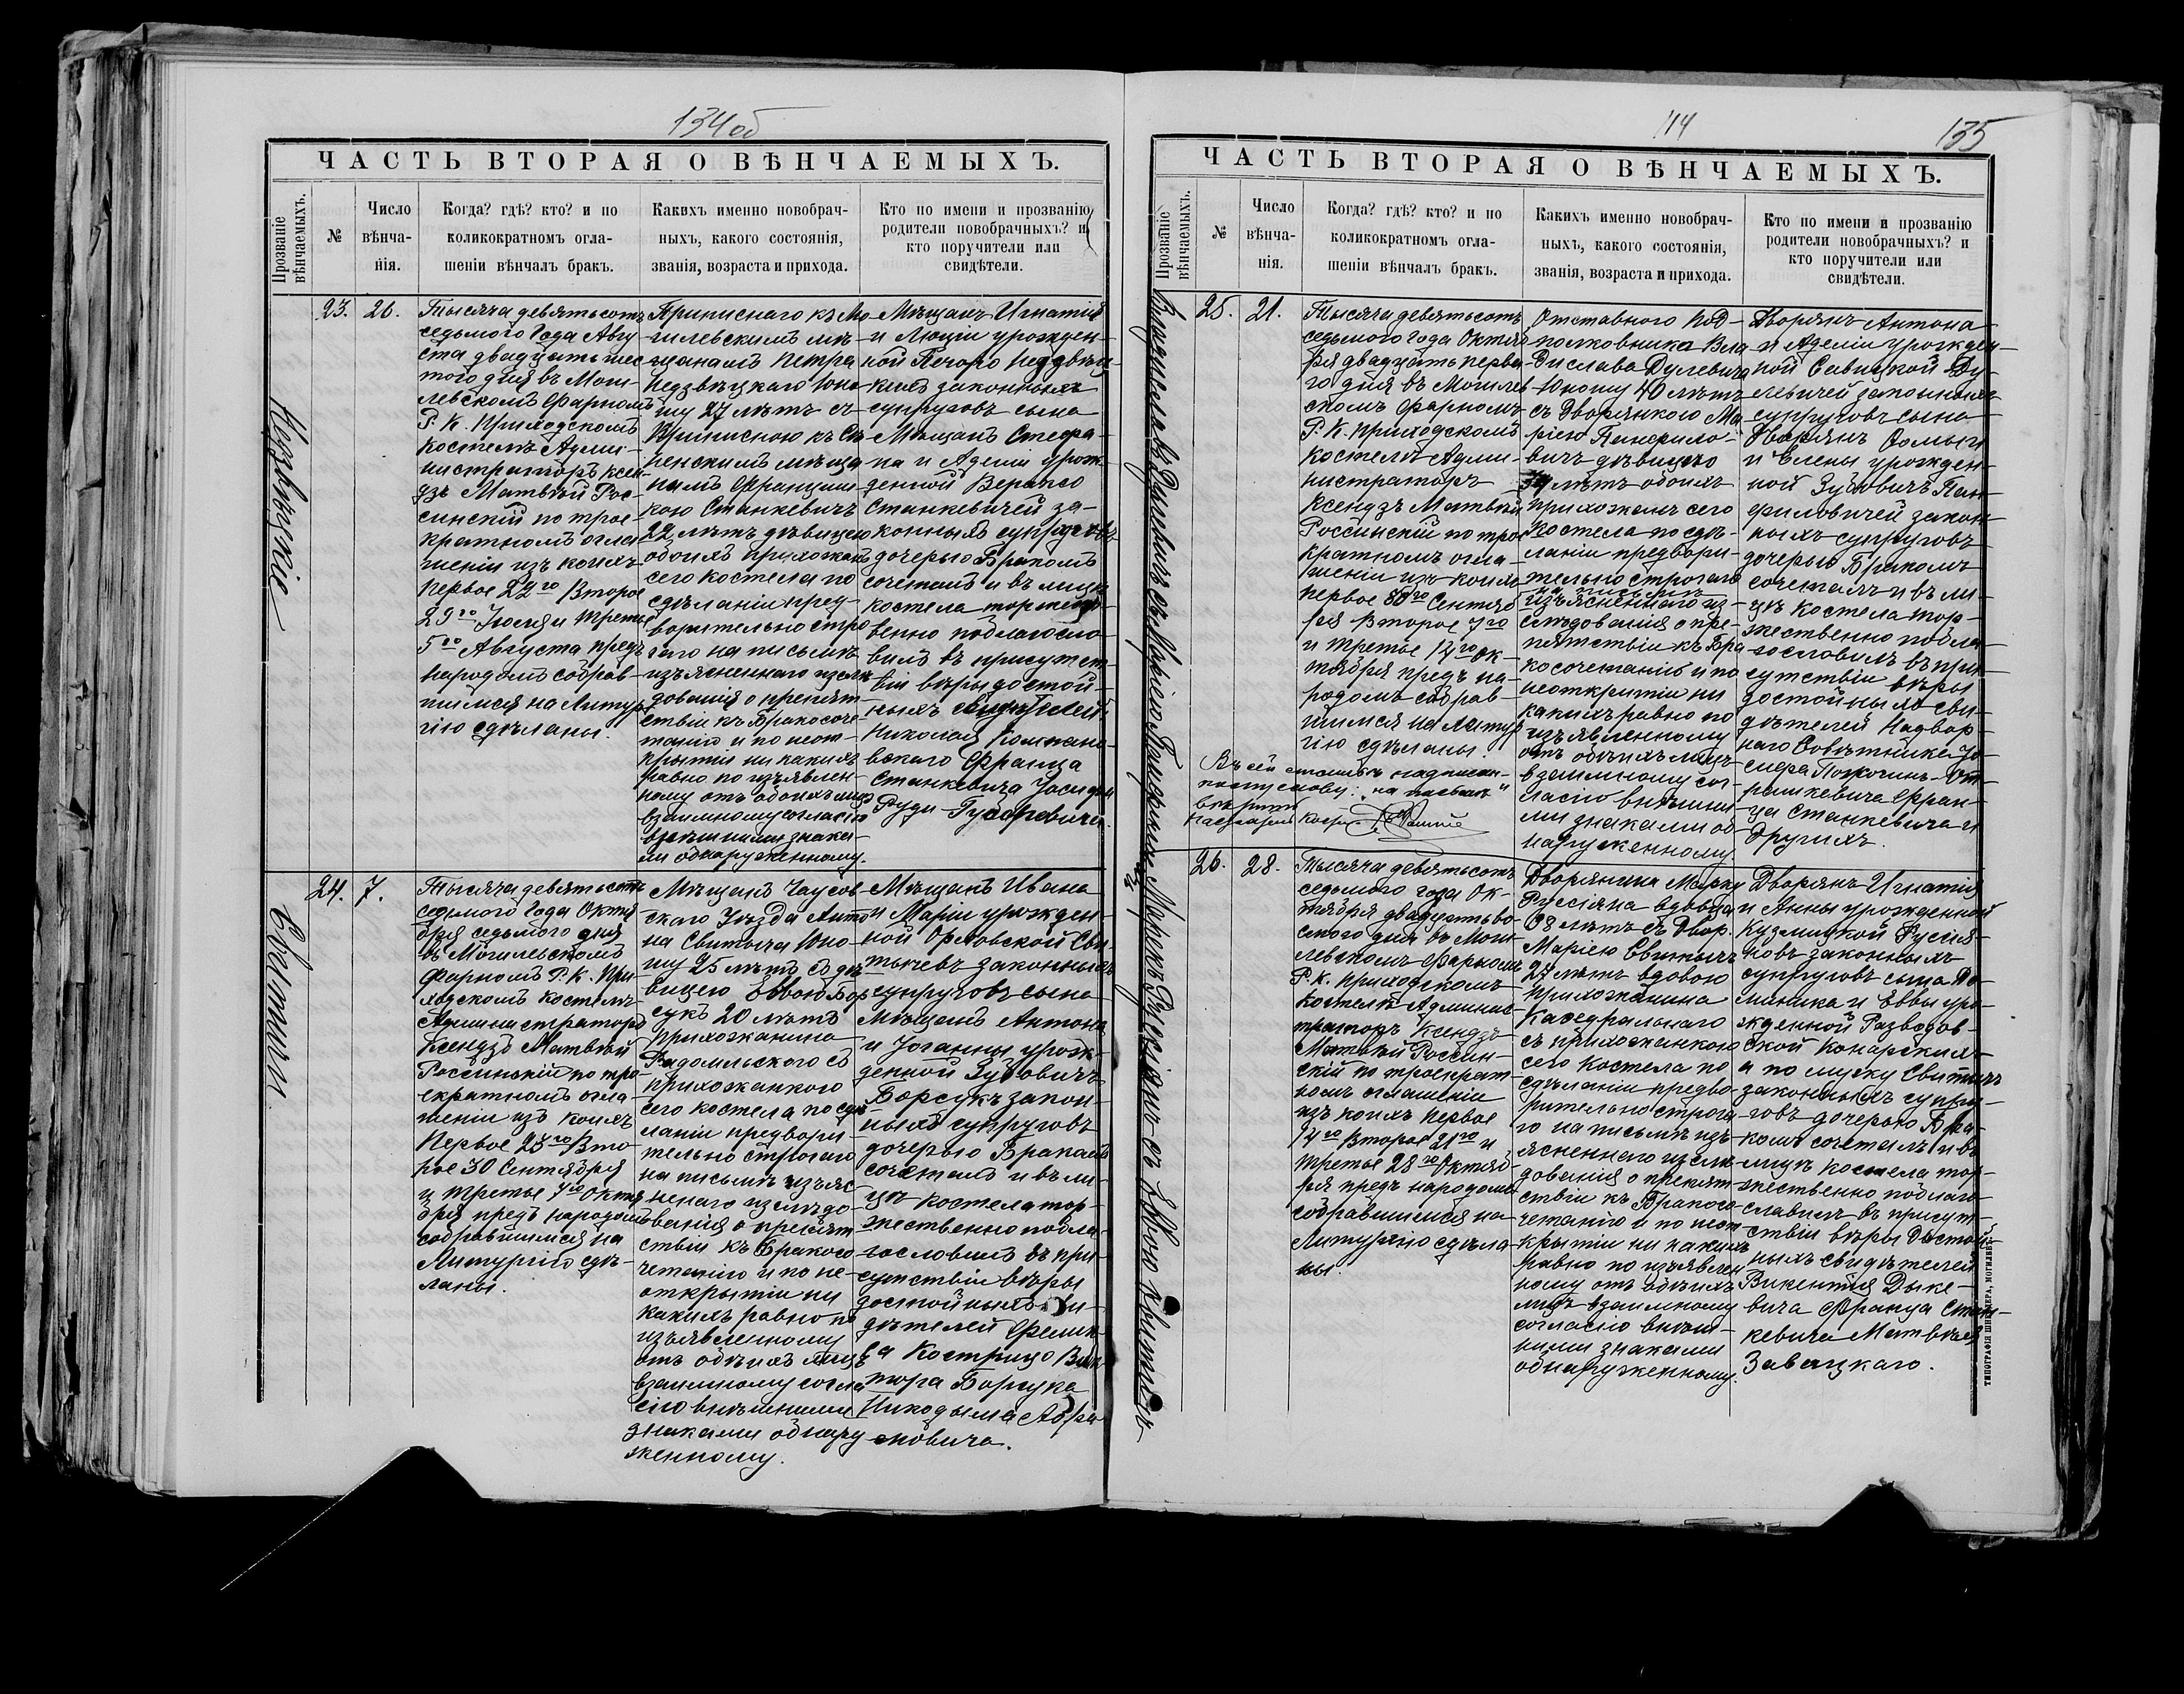 134об
ЧАСТЬ ВТОРАЯ О ВѢНЧАЕМЫХЪ.
Прозваніе вѣнчаемыхъ.
№
Число
вѣнча-
нія.
Когда? гдѣ? кто? и по
коликократномъ огла-
шеніи вѣнчалъ бракъ.
Какихъ именно новобрач-
ныхъ, какого состоянія,
званія, возраста и прихода.
Кто по имени и прозванію
родители новобрачныхъ? и
кто поручители или
свидѣтели.
23.
26.
Тысяча девятьсотъ
седьмого Года Авгу
ста двадцать шес
того дня въ Моги-
левскомъ Фарномъ
Р. К. Приходскомъ
костелѣ Адми-
нистраторъ ксен
дзъ Матвѣй Рос-
синскій по трое-
кратномъ огла
шеніи изъ коихъ
первое 22го Второе
29го Іюля и третье
5го Августа предъ
народомъ собрав-
шимся на Литур
гію сдѣланы.
Приписнаго къ Мо
гилевскимъ мѣ-
щанамъ Петра
Недзвѣцкаго Юно
шу 27 лѣтъ съ
Приписною къ Сѣ-
ненскимъ мѣща
намъ Францишкою
Станкевичъ
22 лѣтъ дѣвицею
обоихъ прихожанъ
сего костела по
сдѣланіи пред-
ворительно стро
гаго на письмѣ
изъясненнаго изслѣ
дованія о препят
ствіи къ Бракосоче-
танію и по неот-
крытіи ни какихъ
равно по изъявлен-
ному отъ обоихъ лицъ
взаимному согласію
внѣшними знака-
ми обнаруженному.
Мѣщанъ Игнатія
и Люціи урожден-
ной Печоро Недзвѣц-
кихъ законныхъ
супруговъ сына
Мѣщанъ Стефа-
на и Аделіи урож-
денной Верапсо
Станкевичей за-
конныхъ супруговъ
дочерью Бракомъ
сочеталъ и въ лицѣ
костела торжест-
венно поблагосло-
вилъ въ присутст
віи вѣры достой-
ныхъ свидѣтелей
Николая
Франца
Станкевича Іосифа
Руди-Гусаревича.
24.
7.
Свитычи
Тысяча девятьсотъ
седьмого Года Октя
бря седьмого дня
въ Могилевскомъ
Фарномъ Р. К. При
ходскомъ костелѣ
Администраторъ
Ксендзъ Матвѣй
Россинскій по тро-
екратномъ огла-
шеніи изъ коихъ
Первое 23го Вто-
рое 30 Сентября
и третье 7го Октя
бря предъ народомъ
собравшимся на
Литургію сдѣ-
ланы.
Мѣщанъ Чаусов-
скаго Уѣзда Анто
на Свитыча Юно-
шу 25 лѣтъ съ дѣ-
вицею Еввою Бор
сукъ 20 лѣтъ
прихожанина
Радомльского съ
прихожанкою
сего костела по сдѣ-
ланіи предвори-
тельно строгаго
на письмѣ изъяс
неннаго изслѣдо-
ванія о препят
ствіи къ Бракосо-
четанію и по не-
открытіи ни
какихъ равно по
изъявленному
отъ обѣихъ лицъ
взаимному согла
сію внѣшними
знаками обнару
женному.
Мѣщанъ Ивана
и Маріи урожден-
ной Орловской Сви-
тычевъ законныхъ
супруговъ сына
Мѣщанъ Антона
и Іоганны урож-
денной Зубовичъ
Борсукъ закон-
ныхъ супруговъ
дочерью Бракомъ
сочеталъ и въ ли-
цѣ костела тор-
жественно побла-
гословилъ въ при-
сутствіи вѣры
достойныхъ сви-
дѣтелей Феликса
Кострицо Вик-
тора Борсука
Никодыма Абра-
мовича.
114
135
ЧАСТЬ ВТОРАЯ О ВѢНЧАЕМЫХЪ.
Прозваніе вѣнчаемыхъ.
№
Число
вѣнча-
нія.
Когда? гдѣ? кто? и по
коликократномъ огла-
шеніи вѣнчалъ бракъ.
Какихъ именно новобрач-
ныхъ, какого состоянія,
званія, возраста и прихода.
Кто по имени и прозванію
родители новобрачныхъ? и
кто поручители или
свидѣтели.
Владиславъ Дулевичъ съ Маріею Панфиловичъ
25.
21.
Тысяча девятьсотъ
седьмого Года Октяб
ря двадцать перва-
го дня въ Могилев
скомъ Фарномъ
Р. К. приходскомъ
костелѣ Адми-
нистраторъ
Ксендзъ Матвѣй
Россинскій по трое
кратномъ огла-
шеніи изъ коихъ
первое 30го Сентяб
ря Второе 7го
и третье 14го Ок-
тября предъ на-
родомъ собрав-
шимся на Литур
гію сдѣланы
Въ сей статьѣ надписан-
ному слову: „на письмѣ"
вѣрить
Отставного Под-
полковника Вла
дислава Дулевича
Юношу 40 лѣтъ
съ Дворянкою Ма
ріею Панфило-
вичъ дѣвицею
34 лѣтъ обоихъ
прихожанъ сего
костела по сдѣ-
ланіи предвори-
тельно строгаго
на письмѣ
изъясненнаго из-
слѣдованія о пре-
пятствіи къ Бра
косочетанію и по
неоткрытіи ни
какихъ равно по
изъявленному
отъ обѣихъ лицъ
взаимному сог-
ласію внѣшни-
ми знаками об-
наруженному.
Дворянъ Антона
и Аделіи урожден-
ной Савицкой Ду-
левичей законныхъ
супруговъ сына
Дворянъ Фомы
и Елены урожден-
ной Зубовичъ Пан-
филовичей закон-
ныхъ супруговъ
дочерью Бракомъ
сочеталъ и въ ли-
цѣ костела тор-
жественно побла-
гословилъ въ при-
сутствіи вѣры
достойныхъ сви-
дѣтелей Надвор-
наго Совѣтника Іо-
сифа
Фран-
ца Станкевича и
другихъ.
Маркъ Руссіянъ съ Еввою Свитычъ
26.
28.
Тысяча девятьсотъ
седьмого года Ок-
тября двадцать во-
сьмого дня въ Моги-
левскомъ Фарномъ
Р. К. приходскомъ
костелѣ Админис-
траторъ Ксендзъ
Матвѣй Россин-
скій по троекрат-
номъ оглашеніи
изъ коихъ первое
14го Второе 21го и
третье 28го Октяб-
ря предъ народомъ
собравшимся на
Литургію сдѣла-
ны.
Дворянина Марку
Руссіяна вдовца
68 лѣтъ съ Двор.
Маріею Свитычъ
24 лѣтъ вдовою
прихожанина
Кафедральнаго
съ прихожанкою
сего Костела по
сдѣланіи предво-
рительно строга-
го на письмѣ изъ-
ясненнаго изслѣ-
дованія о препят
ствіи къ Бракосо-
четанію и по неот
крытіи ни какихъ
равно по изъявлен
ному отъ обѣихъ
лицъ взаимному
согласію внѣш-
ними знаками
обнаруженному.
Дворянъ Игнатія
и Анны урожденной
Кузмицкой Руссія-
новъ законныхъ
супруговъ сына До-
миника и Еввы уро-
жденной Разводов-
ской Конарскихъ
а по мужу Свитычъ
законныхъ супру-
говъ дочерью Бра-
комъ сочеталъ и въ
лицѣ костела тор-
жественно поблаго-
славилъ въ присут-
ствіи вѣры достой-
ныхъ свидѣтелей
Викентія Дыке-
вича Франца Стан-
кевича Матвѣя
Завацкаго.
ТИПОГРАФІЯ ШНЕЙДЕРА, МОГИЛЕВЪ